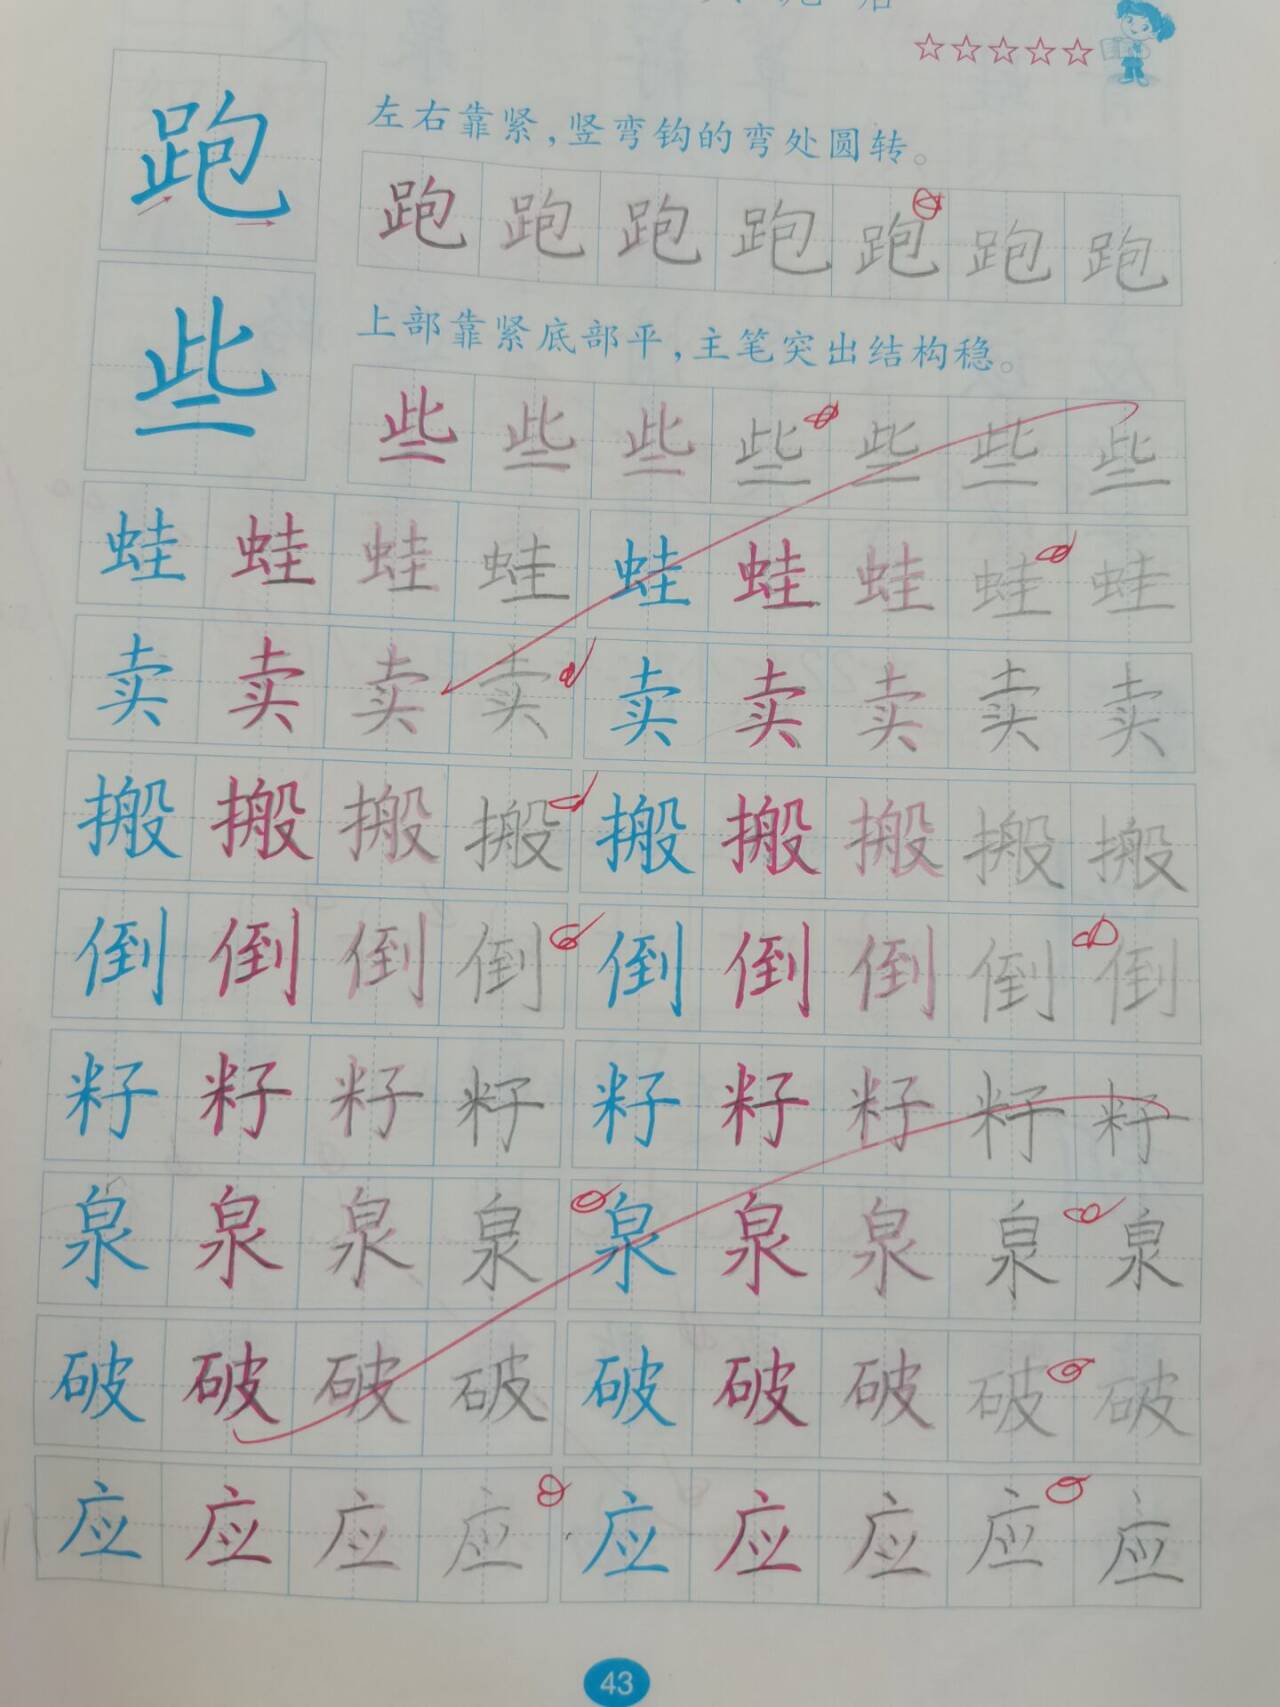 跑
左右靠紧，竖弯钩的弯处圆转。
跑 跑 跑 跑 跑 跑 跑
些
上部靠紧底部平，主笔突出结构稳。
些 些 些 些 些 些 些
蛙 蛙 蛙 蛙 蛙 蛙 蛙 蛙 蛙
卖 卖 卖 卖 卖 卖 卖 卖 卖
搬 搬 搬 搬 搬 搬 搬 搬 搬
倒 倒 倒 倒 倒 倒 倒 倒 倒
籽 籽 籽 籽 籽 籽 籽 籽 籽
泉 泉 泉 泉 泉 泉 泉 泉 泉
破 破 破 破 破 破 破 破 破
应 应 应 应 应 应 应 应 应
43